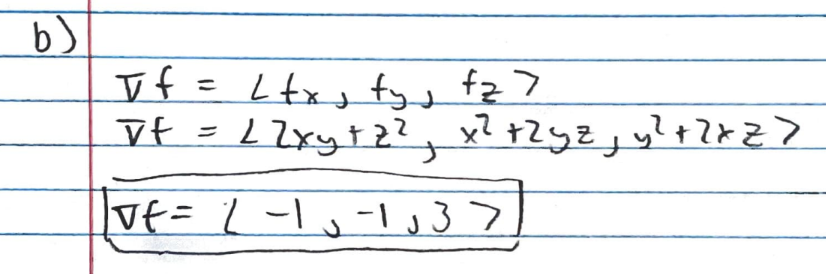 b)
∇f = <fx, fy, fz>
∇f = <2xy+z², x²+2yz, y²+2xz>
∇f = <-1, -1, 3>